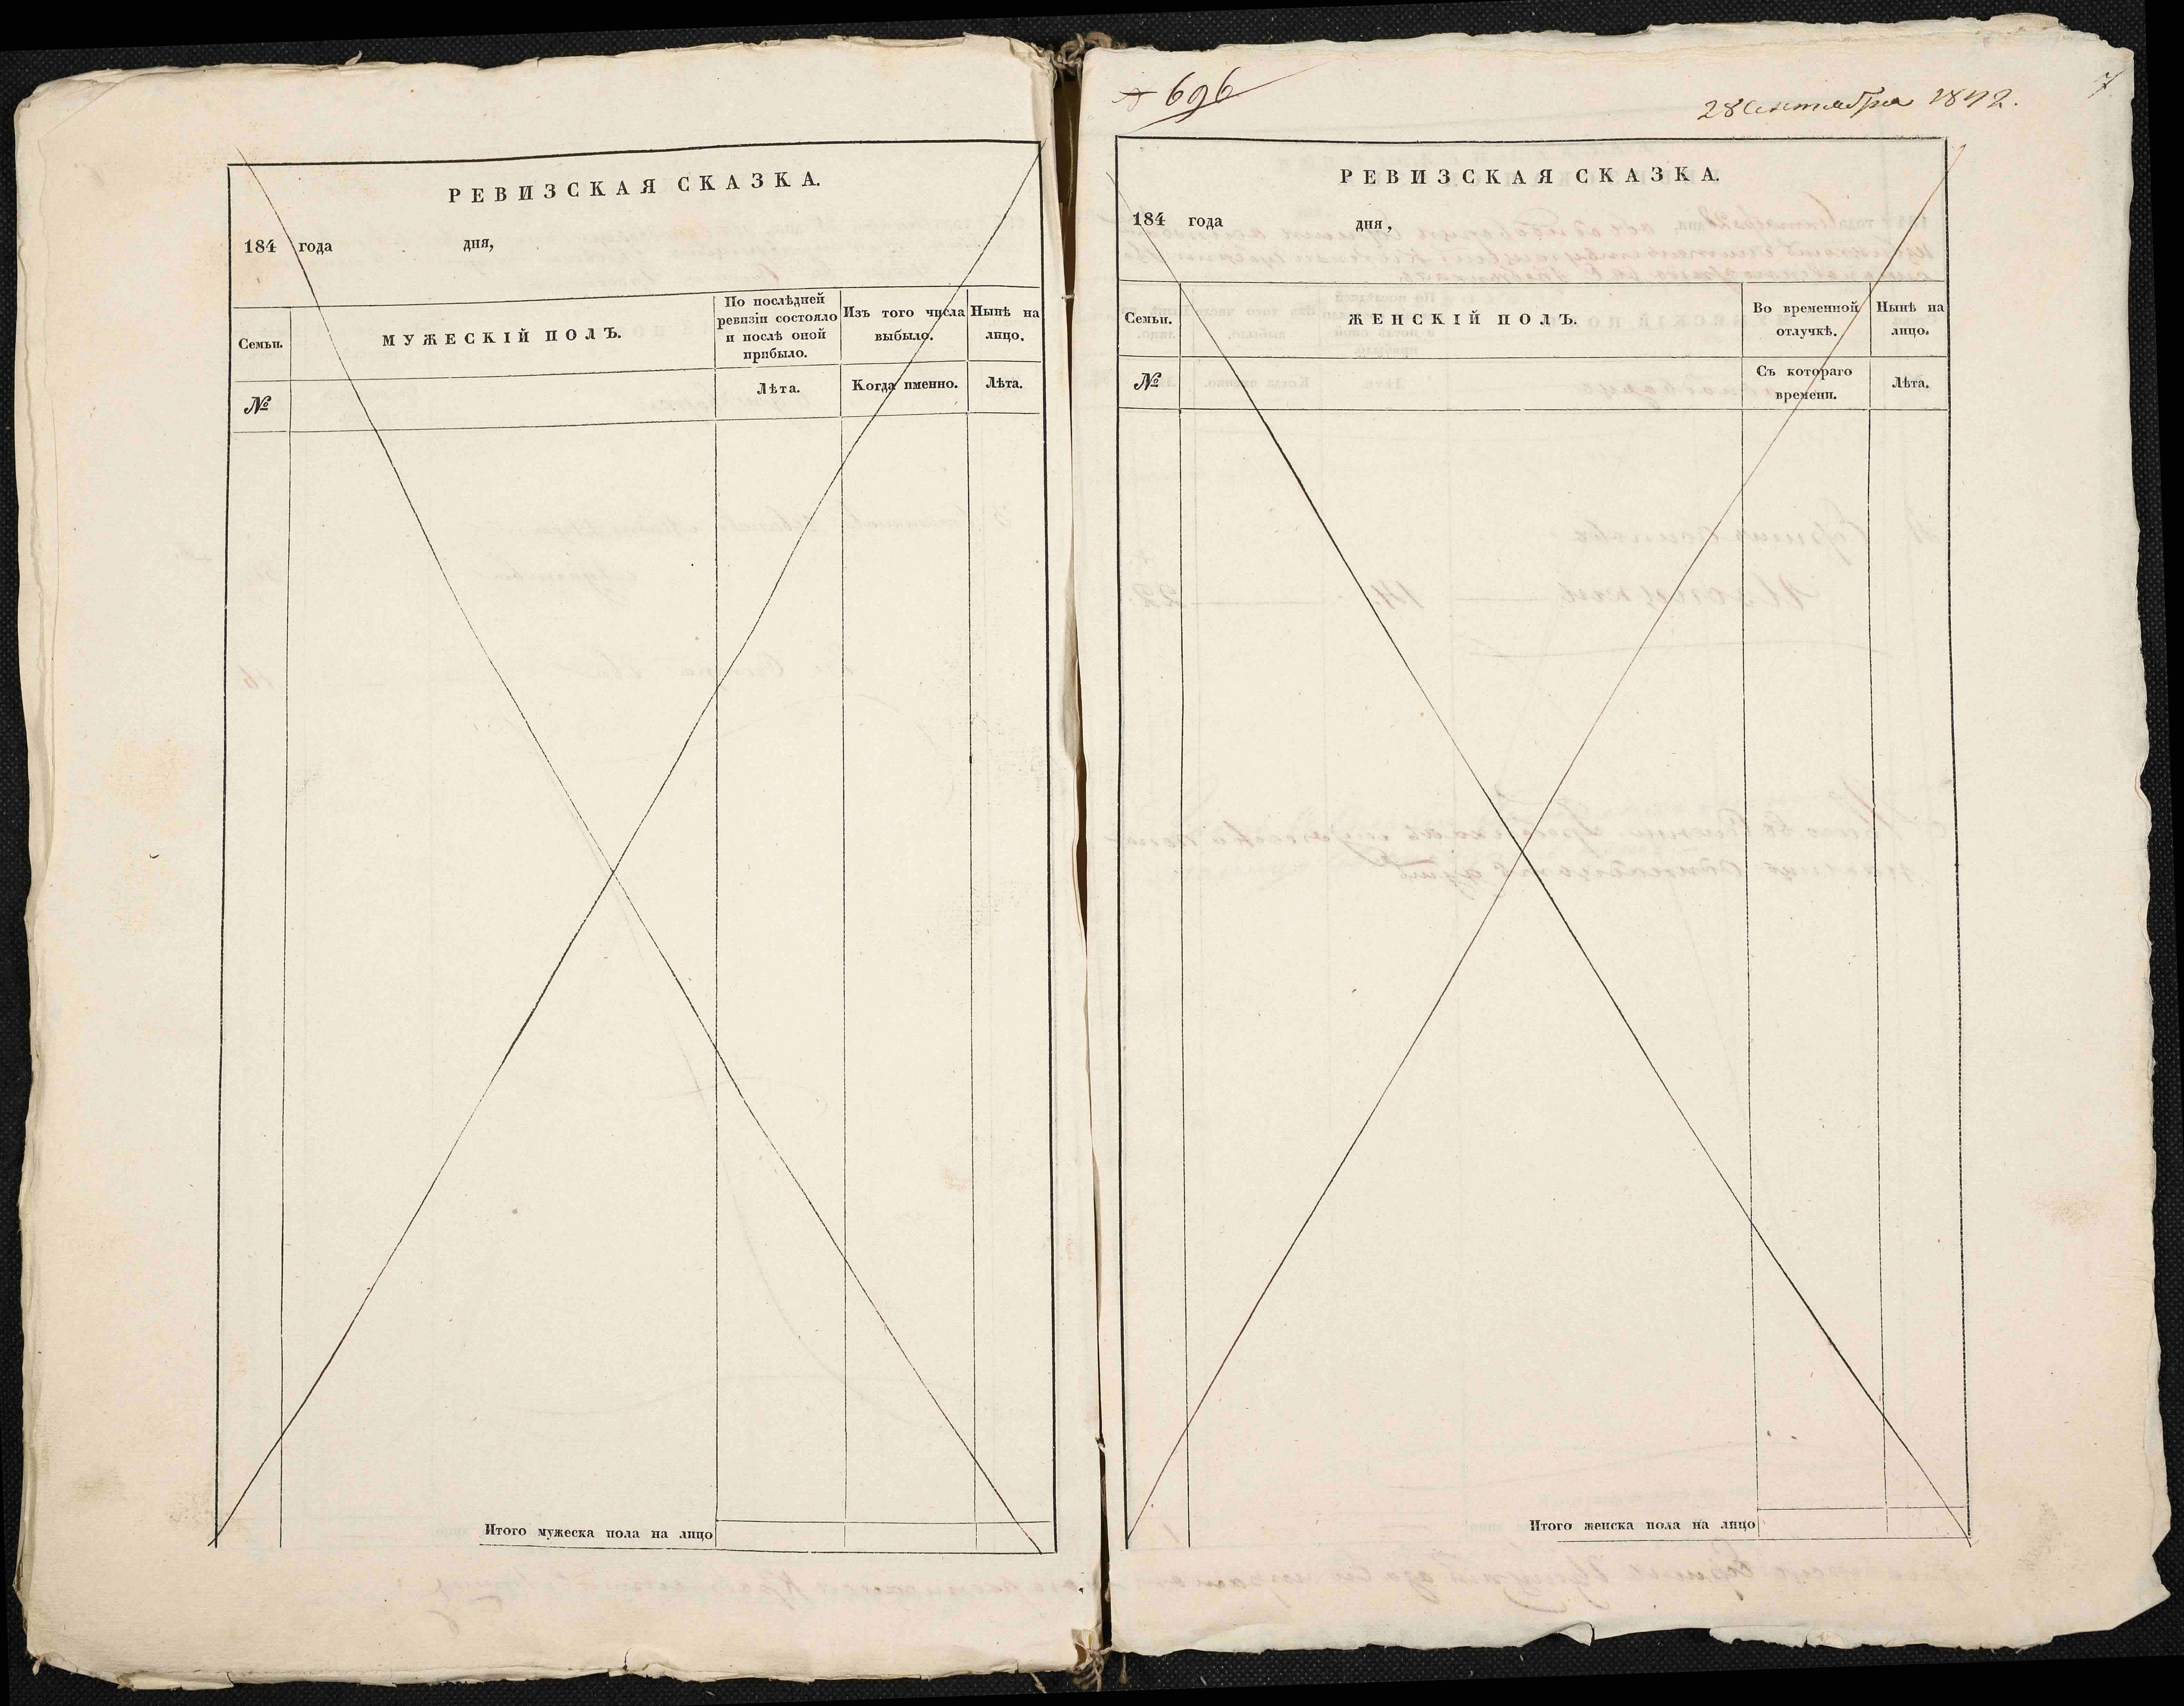 РЕВИЗСКАЯ СКАЗКА.
184 года дня,
Семьи.
МУЖЕСКІЙ ПОЛЪ.
По послѣдней
ревизіи состояло
и послѣ оной
прибыло.
Изъ того числа
выбыло.
Нынѣ на
лицо.
№
Лѣта.
Когда именно.
Лѣта.
Итого мужеска пола на лицо
696
28 Сентября 1842.
7
РЕВИЗСКАЯ СКАЗКА.
184 года дня,
Семьи.
ЖЕНСКІЙ ПОЛЪ.
Во временной
отлучкѣ.
Нынѣ на
лицо.
№
Съ котораго
времени.
Лѣта.
Итого женска пола на лицо